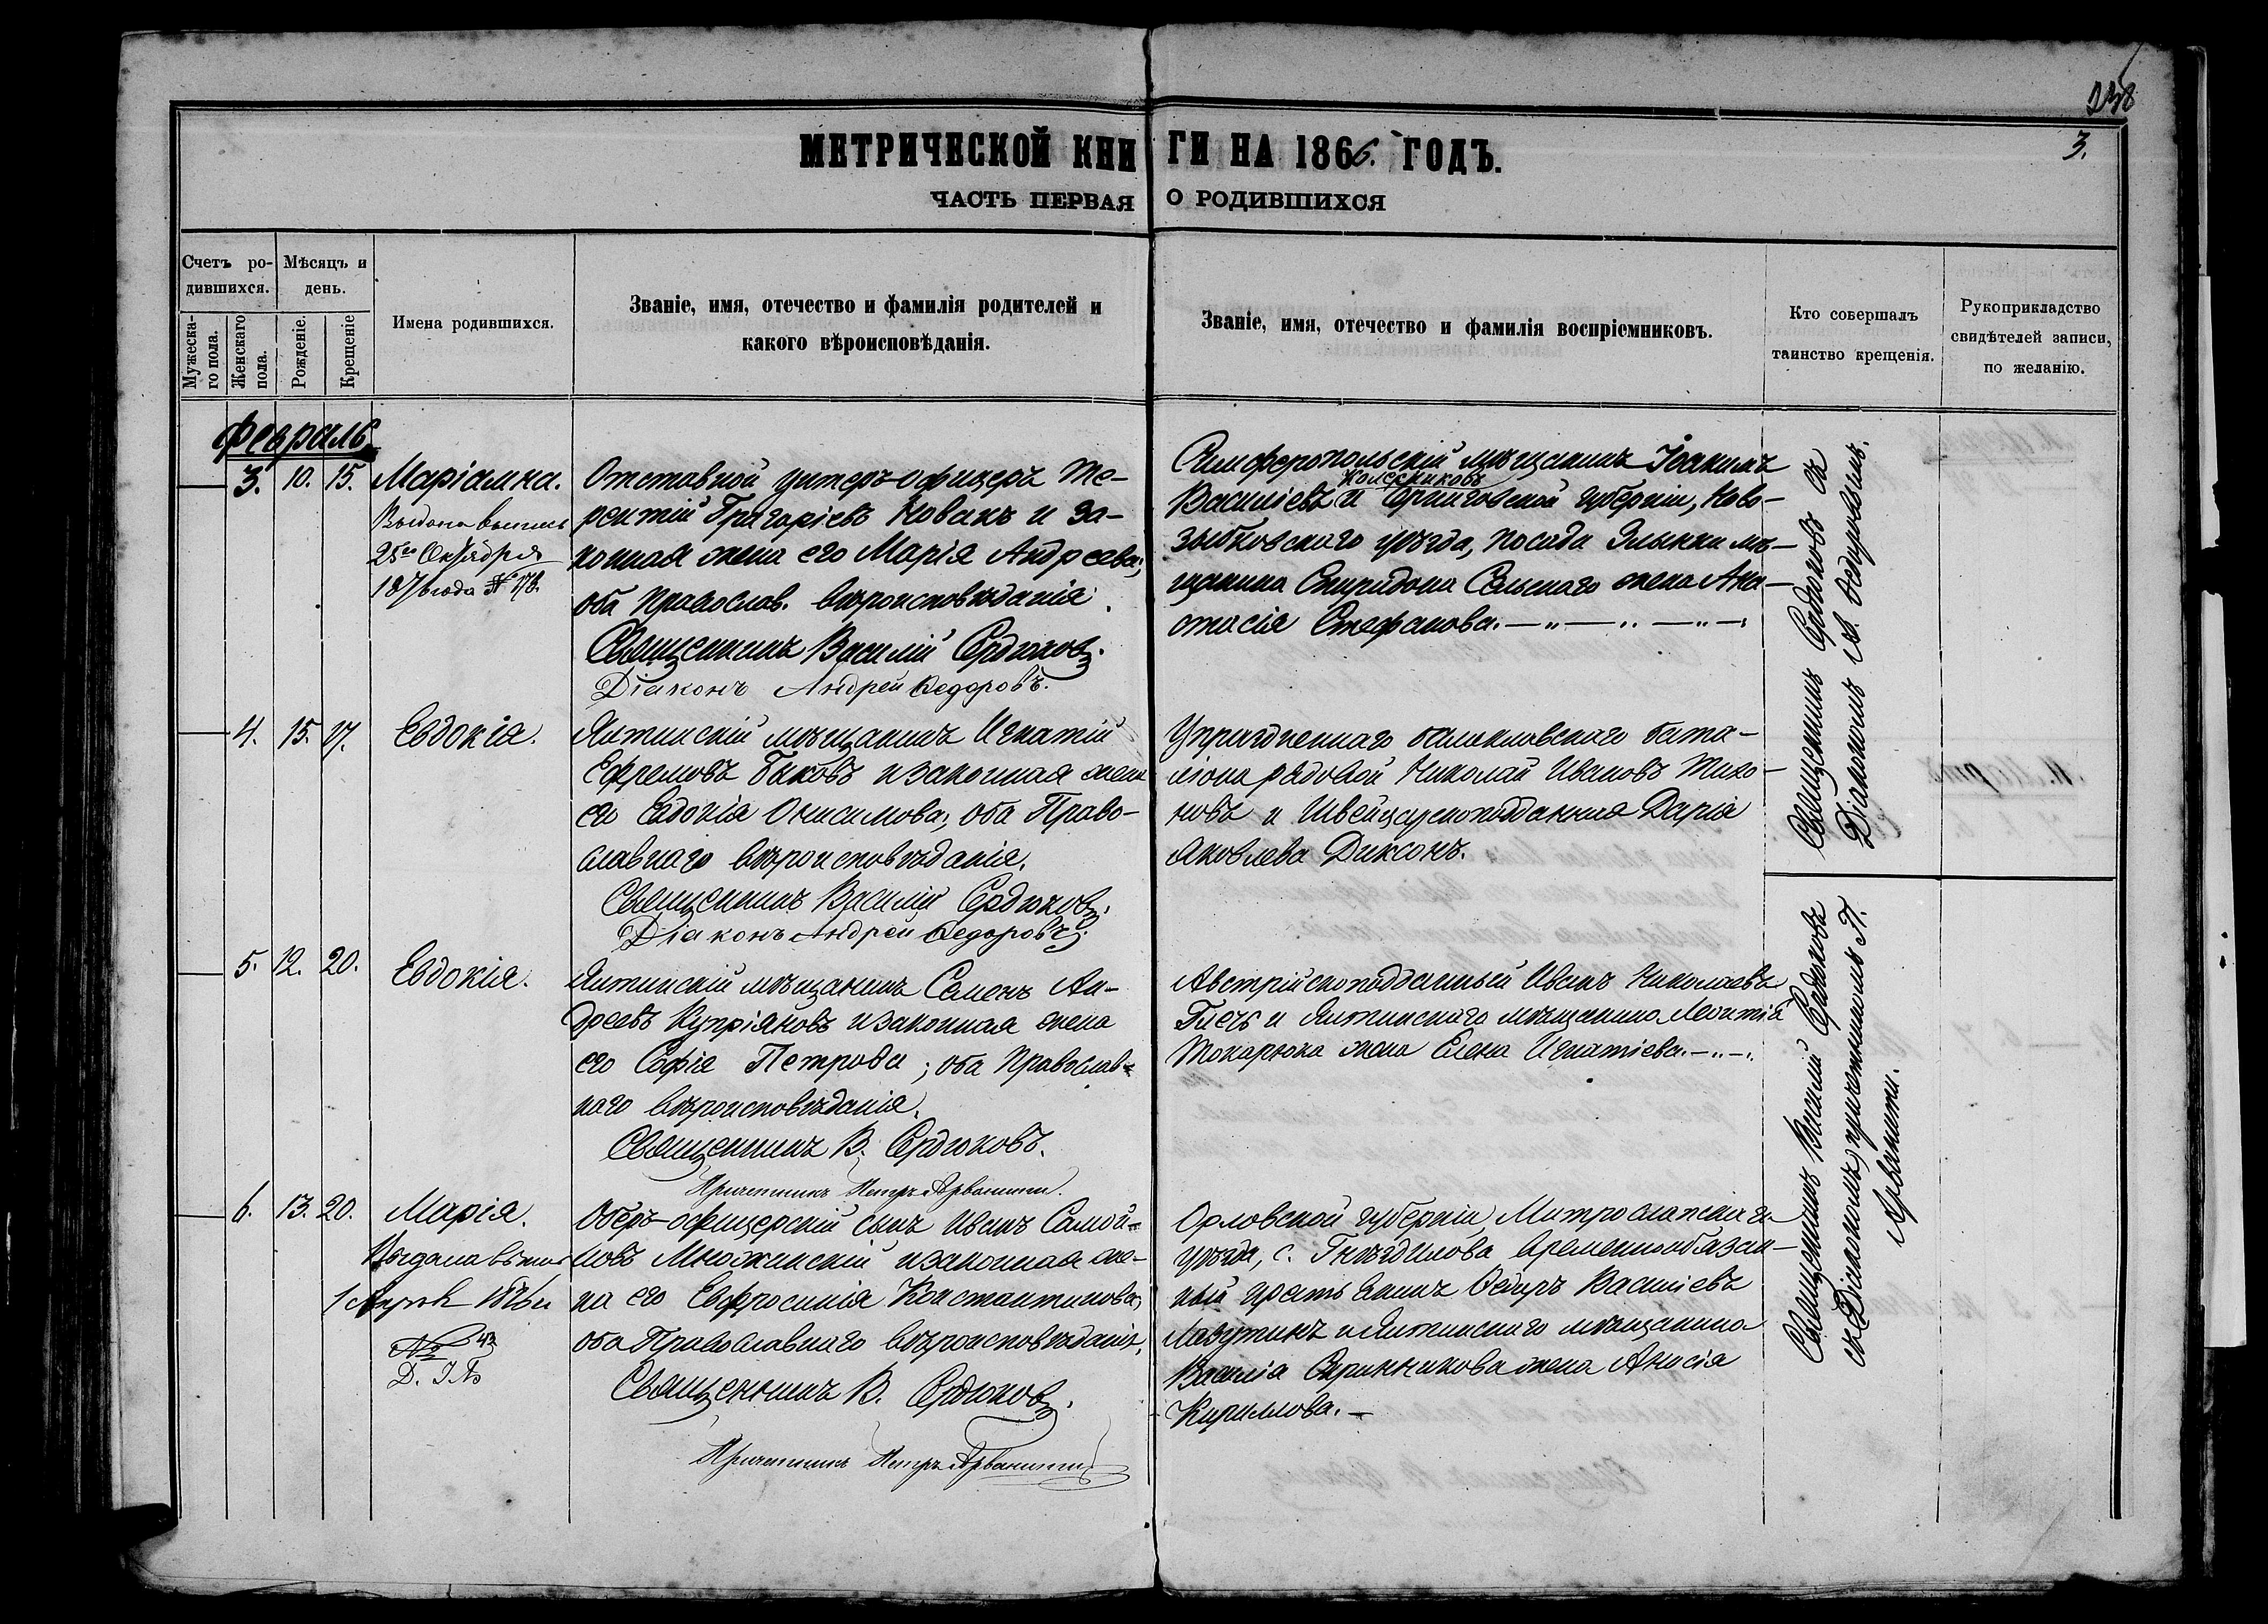 238
3.
МЕТРИЧЕСКОЙ КНИГИ НА 1866. ГОДЪ.
ЧАСТЬ ПЕРВАЯ О РОДИВШИХСЯ
Счетъ ро-
дившихся.
Мужеска-
го пола.
Женскаго
пола.
Мѣсяцъ и
день.
Рожденіе.
Крещеніе
Имена родившихся.
Званіе, имя, отечество и фамилія родителей и
какого вѣроисповѣданія.
Званіе, имя, отечество и фамилія воспріемниковъ.
Кто совершалъ
таинство крещенія.
Рукоприкладство
свидѣтелей записи,
по желанію.
Февраль
3. 10. 15. Маріамна.
Выдана выпись
25го Октября
1876 года № 178.
Отставной унтеръ-офицеръ Те-
рентій Григоріевъ Новакъ и за-
конная жена его Марія Андреева;
оба Православ. вѣроисповѣданія.
Священникъ Василій Сердюковъ.
Діаконъ Андрей Ѳедоровъ.
Симферопольскій мѣщанинъ Іоакимъ
Колесниковъ
Васильевъ и Черниговской губерніи, Ново-
зыбковскаго уѣзда, посада Злынки мѣ-
щанина Спиридона Сельскаго жена Ана-
стасія Стефанова.
4. 15. 17. Евдокія.
Ялтинскій мѣщанинъ Игнатій
Ефремовъ Быковъ и законная жена
его Евдокія Онисимова; оба Право-
славнаго вѣроисповѣданія.
Священникъ Василій Сердюковъ.
Діаконъ Андрей Ѳедоровъ.
Упраздненнаго балаклавскаго бата-
ліона рядовой Николай Ивановъ Тихо-
новъ и Швейцарскоподданная Дарія
Яковлева Диксонъ.
Священникъ Сердюковъ съ
Діакономъ А. Ѳедоровымъ.
5. 12. 20. Евдокія.
Ялтинскій мѣщанинъ Семенъ Ан-
дреевъ Купріяновъ и законная жена
его Софія Петрова; оба Православ-
наго вѣроисповѣданія.
Священникъ В. Сердюковъ.
Причетникъ Петръ Арванити.
Австрійскоподданный Иванъ Николаевъ
и Ялтинскаго мѣщанина Леонтія
Токарюка жена Елена Игнатіева.
6. 13. 20. Марія.
Выдана выпись
1 1876 г.
№ 43
Оберъ-офицерскій сынъ Иванъ Самой-
ловъ Множинскій и законная же-
на его Евфросинія Константинова,
оба Православнаго вѣроисповѣданія.
Священникъ В. Сердюковъ.
Причетникъ Петръ Арванити
Орловской губерніи, Митрославскаго
уѣзда, с. Гнѣздилова временнообязан-
ный крестьянинъ Ѳедоръ Васильевъ
Лазутинъ и Ялтинскаго мѣщанина
Василія Скринникова жена Анисія
Кириллова.
Священникъ Василій Сердюковъ
съ Діакономъ, причетникомъ П.
Арванити.